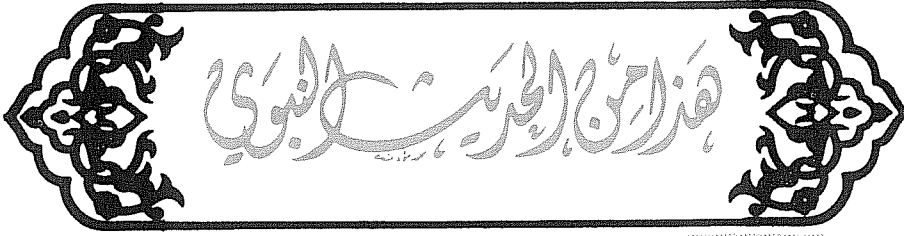 هَذَا مِنَ الْحَدِيثِ النَّبَوِي